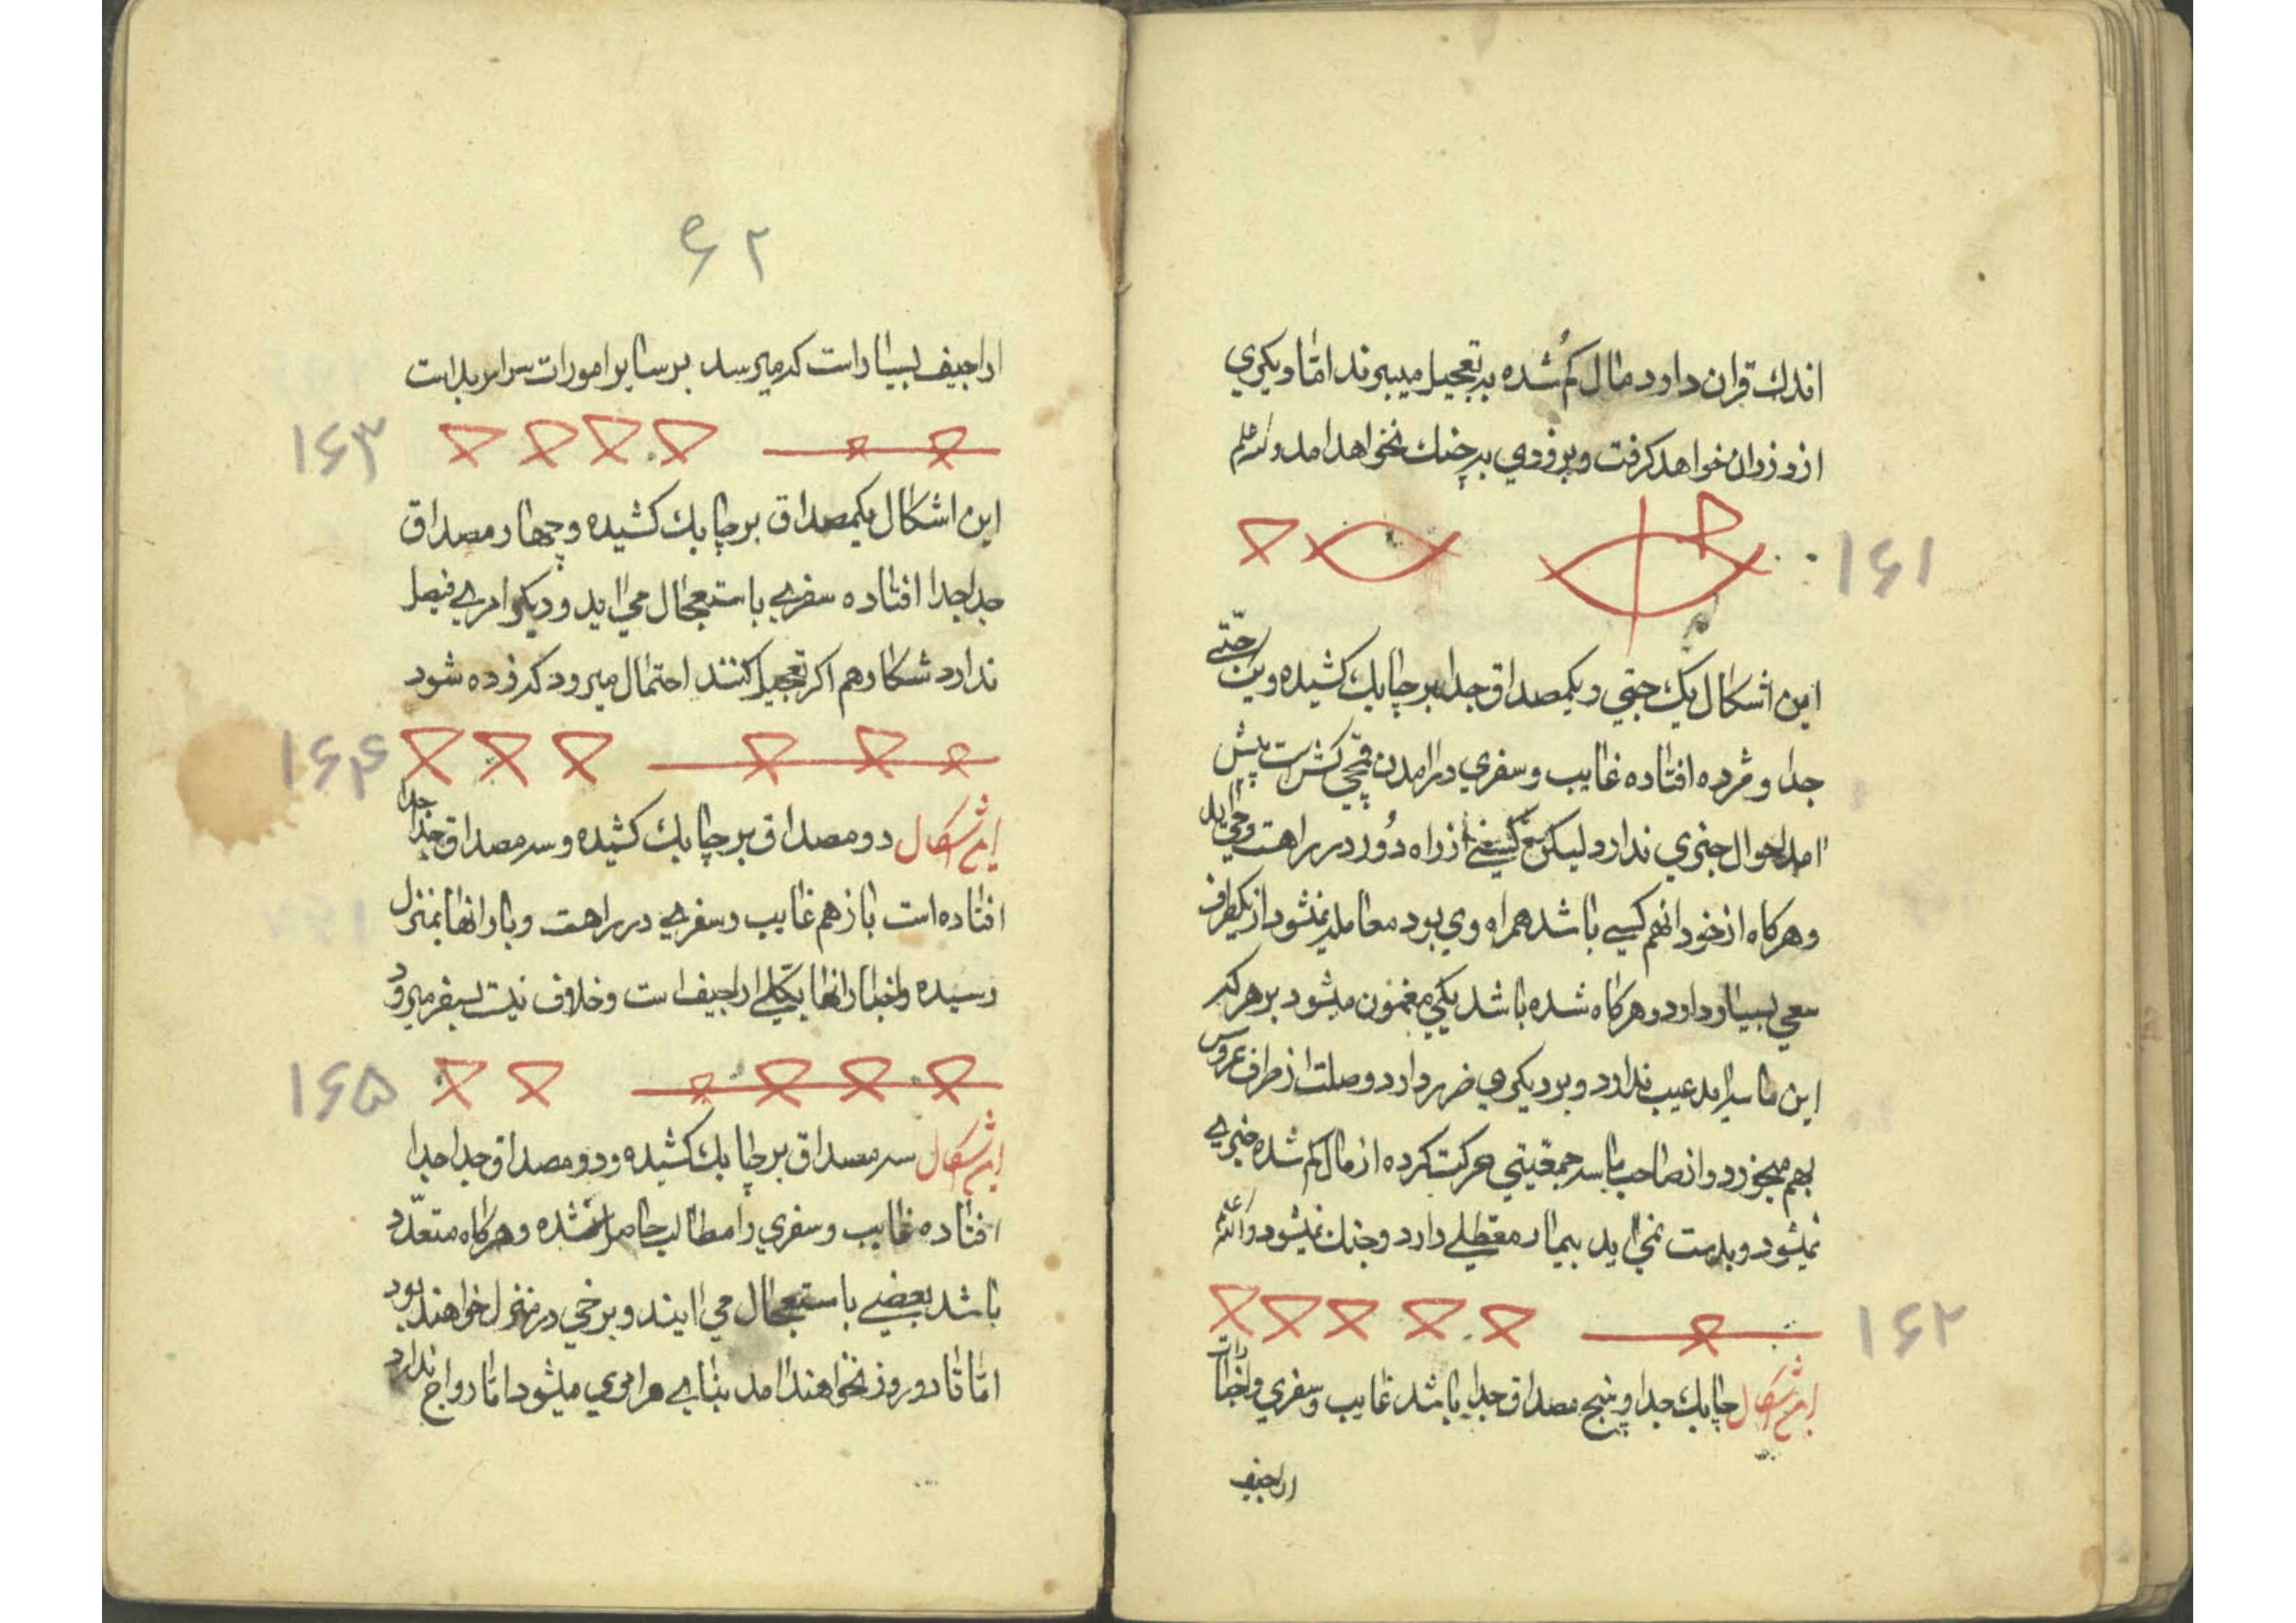 اندك قران دارد مال كم شده بتعجيل ميبرند اما ديكري
از وزوان خواهد كرفت وبر فوري بر چنك نخواهد امد
۱۶۱
اين اشكال يك جفتي ويكمصداق جدا بر چابك كشيده ويك جفتي
جدا ومرده افتاده غايب وسفري در امدن پيش
امد احوال خبري ندارد ليكن از راه دور در راهست
وهركاه از خود انهم كسي باشد همراه وي بود معامله نميشود از يكطرف
سعي بسيار دارد وهركاه شده باشد يكي مغبون ميشود بر هر كه
اين ما سرامد عيب ندارد وبر ديكري ضرر دارد وصلت از طرف عروس
بهم ميخورد وانصاحب حركت كرده از مال كم شده خبري
نميشود وبدست نمي ايد بيمار معطلي دارد وجنك نميشود والله
۱۶۲
اين اشكال چابك جدا وپنج مصداق جدا باشد غايب وسفري واخبارات
اراجيف
۶۲
اراجيف بسيار است كه ميرسد بر ساير امورات سراسر بد است
۱۶۳
اين اشكال يكمصداق بر چابك كشيده وچهار مصداق
جدا جدا افتاده سفري باستعجال مي ايد وديكر امري فيصل
ندارد شكار هم اكر تعجيل كنند احتمال ميرود كه زده شود
۱۶۴
اين اشكال دو مصداق بر چابك كشيده وسه مصداق جدا جدا
افتاده است باز هم غايب وسفري در راهست وبار انها بمنزل
رسيده واخبار انها بكلي اراجيف است وخلاف نيت بسفر ميرود
۱۶۵
اين اشكال سه مصداق بر چابك كشيده ودو مصداق جدا جدا
افتاده غايب وسفري را مطالب حاصل نشده وهركاه متعدد
باشد بعضي باستعجال مي ايند وبرخي در منزل خواهند بود
اما تا دو روز نخواهند امد بناي هر اموري ميشود اما رواج ندارد